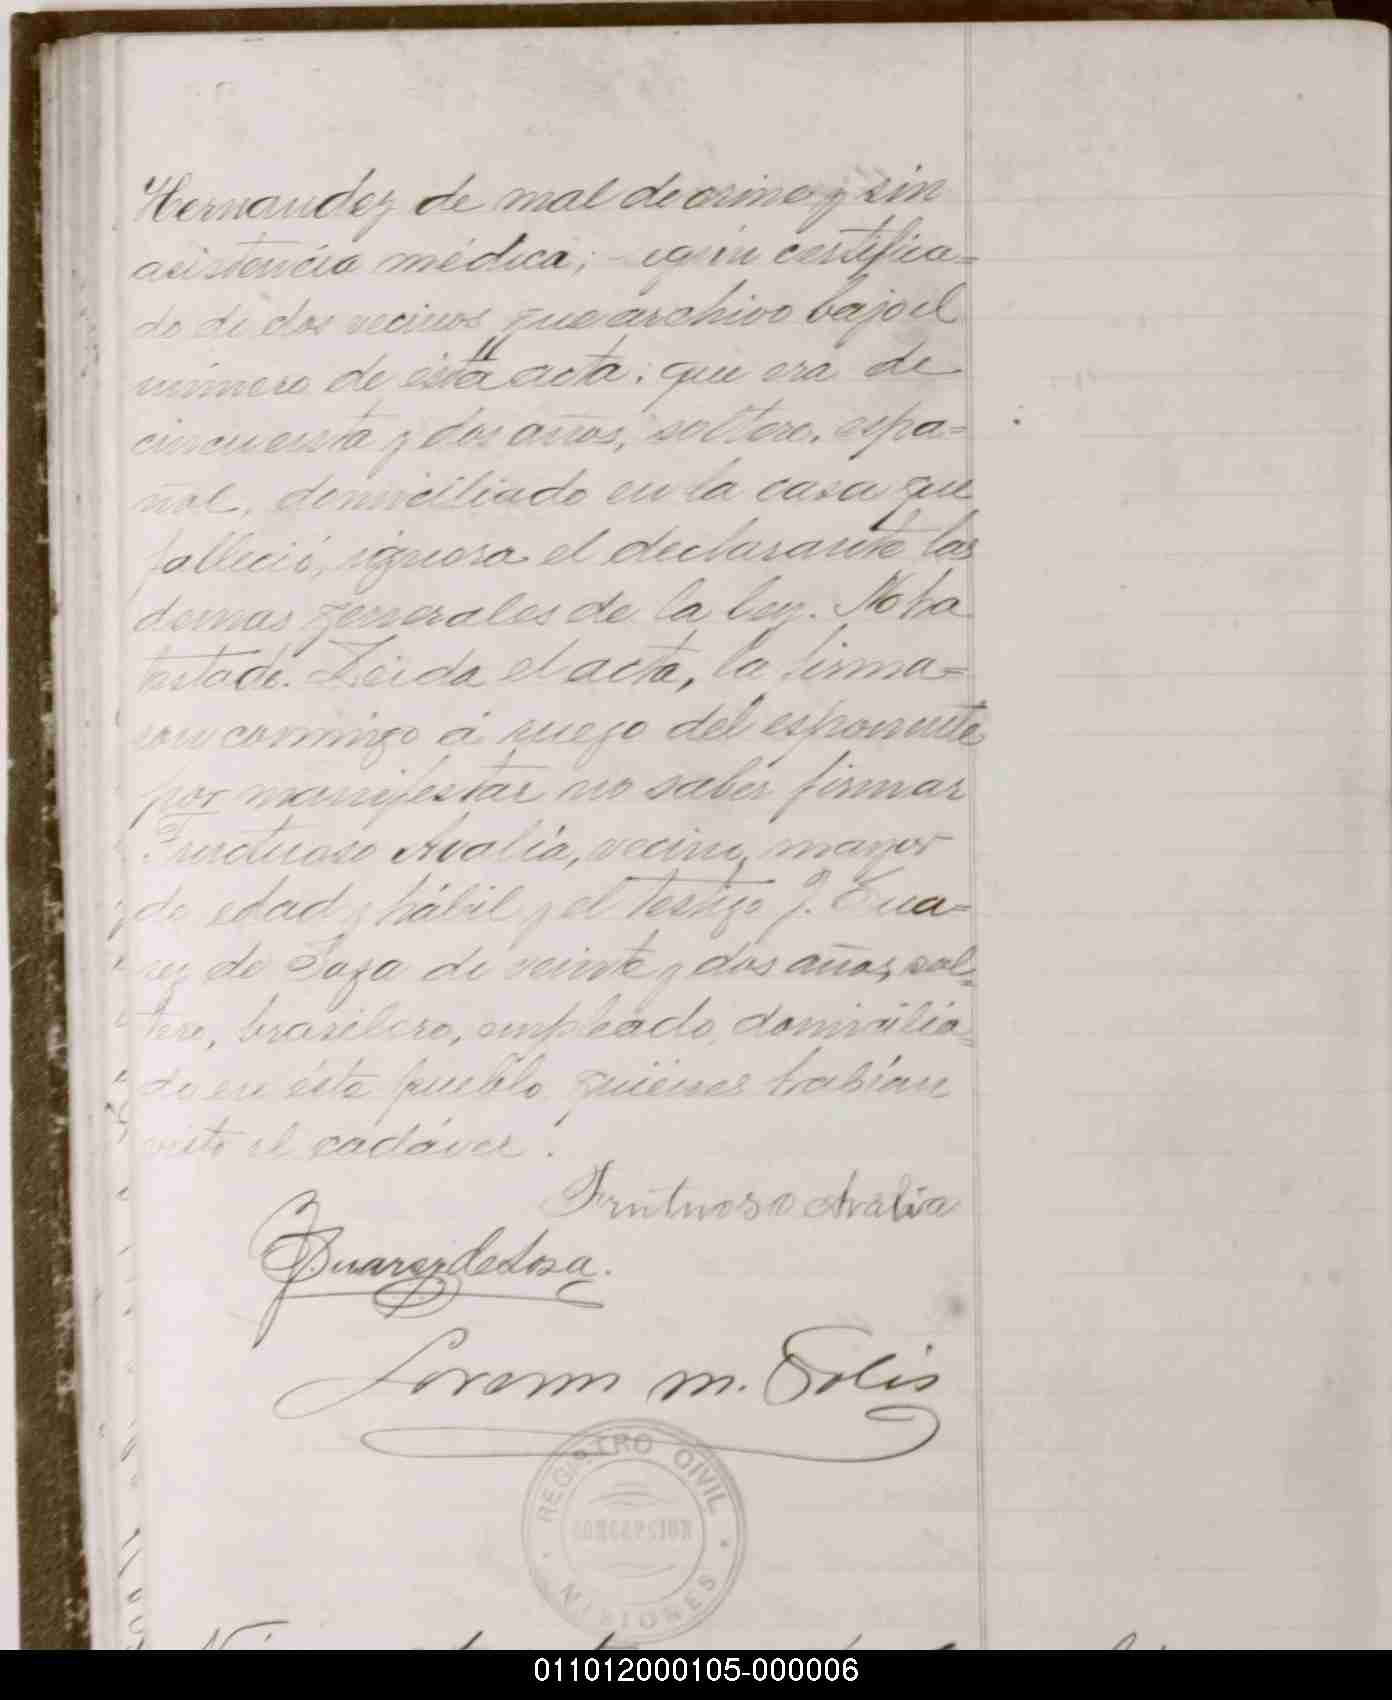 Hernandez de mal de orina y sin
asistencia médica; según certifica=
do de dos vecinos que archivo bajo el
número de ésta acta: que era de
cincuenta y dos años, soltero, espa=
ñol, domiciliado en la casa que
falleció, ignora el declarante las
demas generales de la ley. No ha
testado. Leida el acta, la firma=
ron conmigo á ruego del esponente
por manifestar no saber firmar
Fructuoso Avalía, vecino, mayor
de edad y hábil y el testigo J. Sua=
rez de Soza de veinte y dos años, sol=
tero, brasilero, empleado, domicilia=
do en éste pueblo quienes habían
visto el cadáver.
Frutuoso Avalia
J. Suarez de Sosa.
Lorenzo M. Solis
REGISTRO CIVIL
CONCEPCION
MISIONES
011012000105-000006